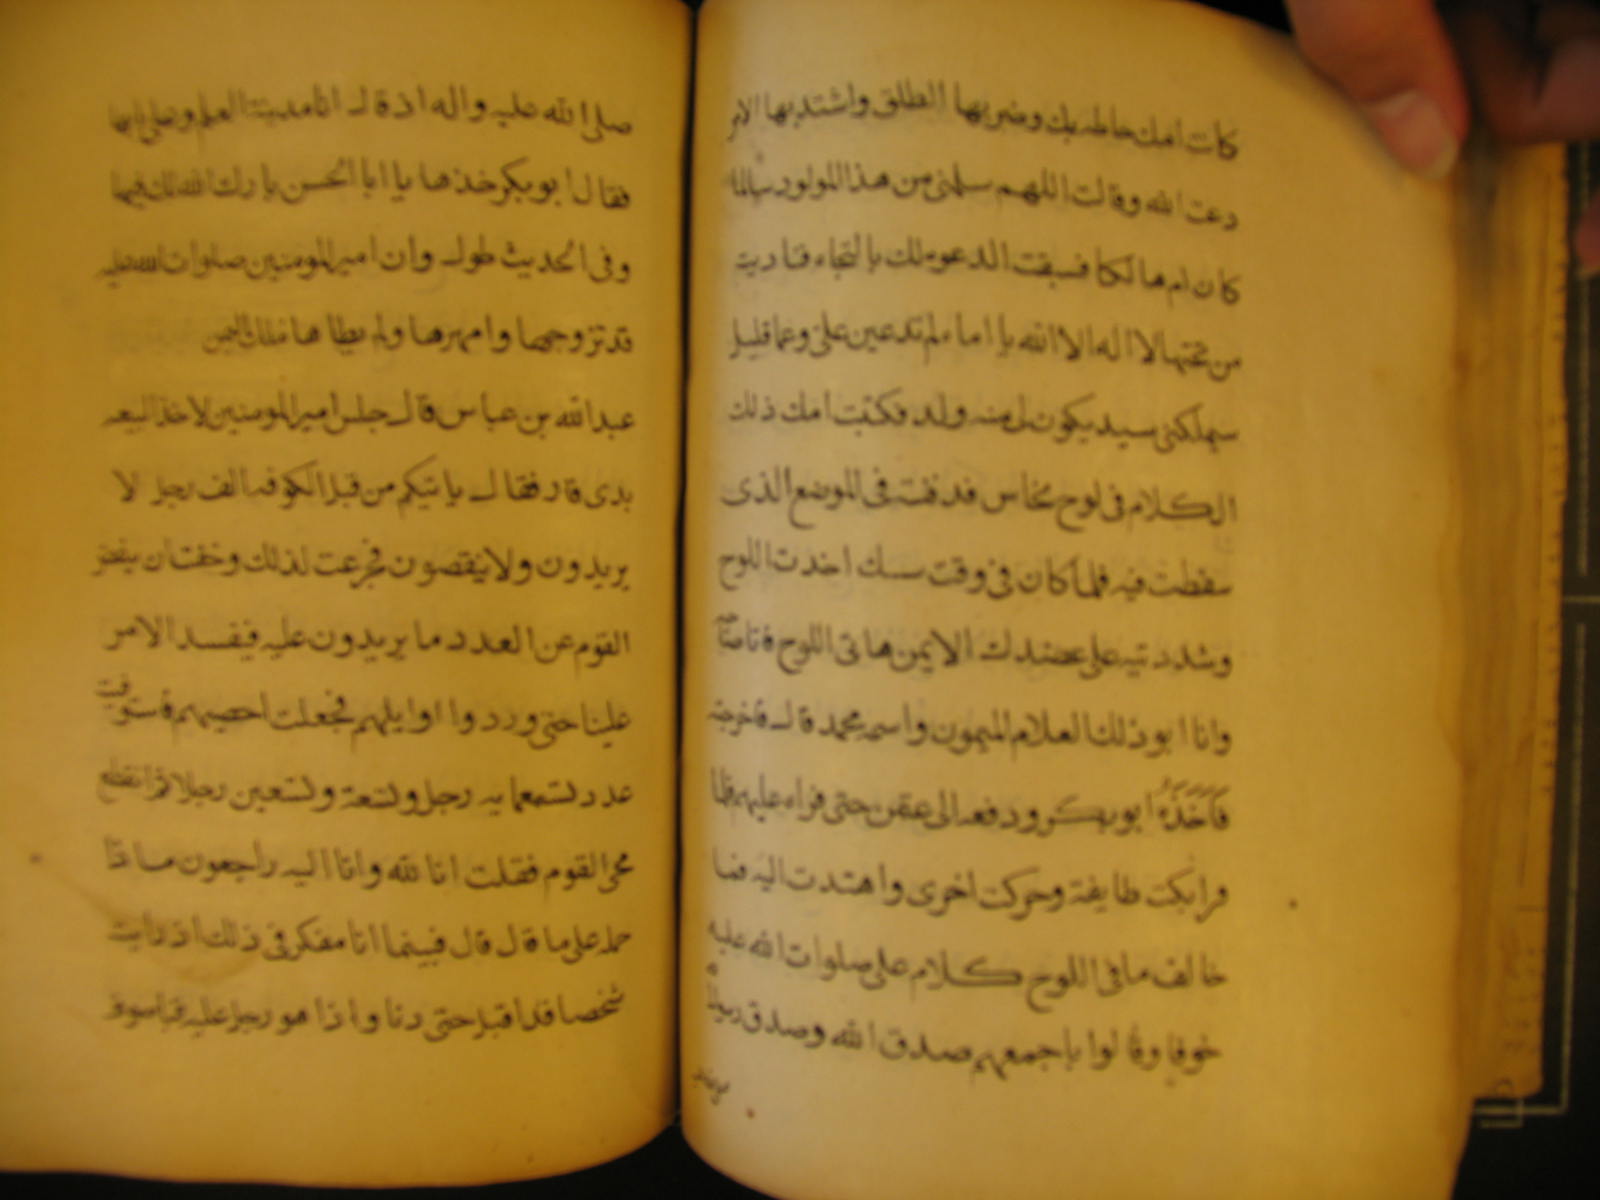 كانت امك حامله بك وضربها الطلق واشتد بها الامر
دعت الله وقالت اللهم سلمنى من هذا المولود سالما
كان ام هالكا فسبقت الدعوه لك بالنجاه فناديت
من تحتها لا اله الا الله يا اماه لم تدعين على وعما قليل
سيملكنى سيد يكون لى منه ولد فكتبت امك ذلك
الكلام فى لوح نحاس فدفنته فى الموضع الذى
سقطت فيه فلما كان فى وقت اخذت اللوح
وشددتيه على عضدك الايمن هاتى اللوح فانا صاحبه
وانا ابو ذلك الغلام الميمون واسمه محمد قال فاخرجته
فَاَخَذَهُ ابو بكر ودفعه الى حتى قراه عليهم فلما
قرا بكت طايفة وحركت اخرى واهتدت اليه فما
خالف ما فى اللوح كلام على صلوات الله عليه
خوفا وقالوا باجمعهم صدق الله وصدق رسوله
صلى الله عليه واله اذ قال انا مدينة العلم وعلى بابها
فقال ابو بكر خذها يا ابا الحسن بارك الله لك فيها
وفى الحديث طول وان امير المومنين صلوات الله عليه
قد تزوجها وامهرها ولم يطاها بملك اليمين
عبد الله بن عباس قال جلس امير المومنين لاخذ البيعه
بذى قار فقال ياتيكم من قبل الكوفه الف رجل لا
يزيدون ولا ينقصون فجزعت لذلك وخفت ان ينقص
القوم عن العدد ما يزيدون عليه فيفسد الامر
علينا حتى وردوا اوايلهم فجعلت احصيهم فاستوفيت
عدد تسعمايه رجل وتسعة وتسعين رجلا ثم انقطع
مجى القوم فقلت انا لله وانا اليه راجعون ماذا
حمله على ما قال قال فبينما انا مفكر فى ذلك اذ رايت
شخصا قد اقبل حتى دنا واذا هو رجل عليه قبا صوف